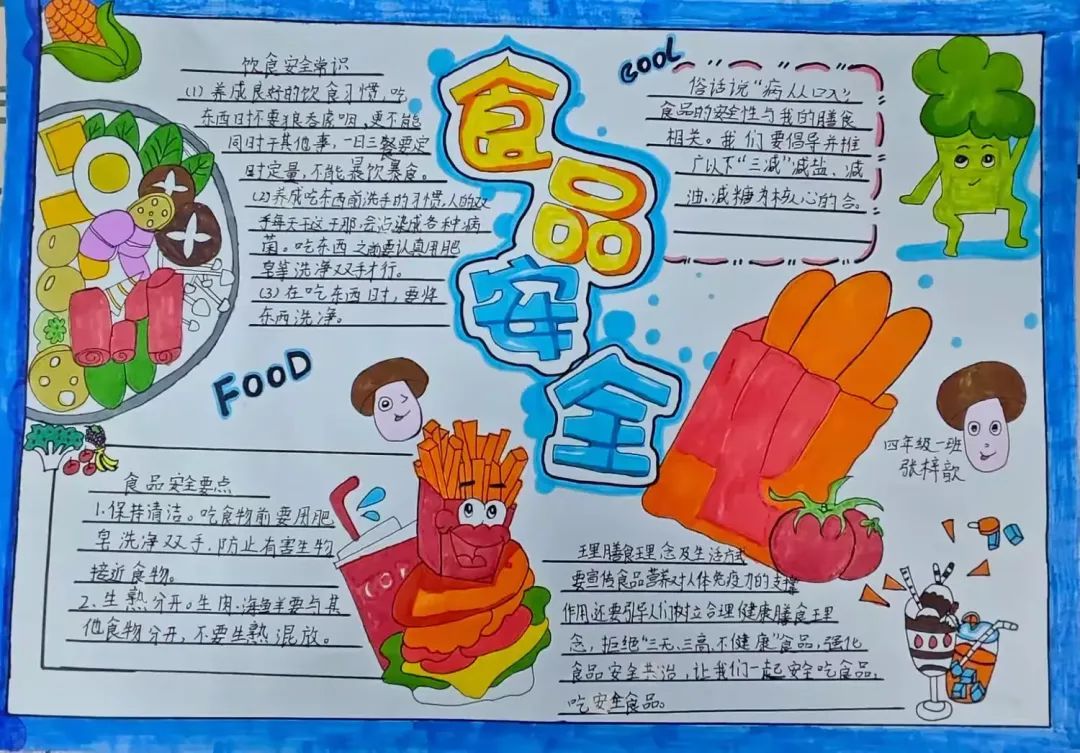 饮食安全常识
(1) 养成良好的饮食习惯,吃
东西时不要狼吞虎咽,更不能
同时干其他事,一日三餐要定
时定量,不能暴饮暴食。
(2)养成吃东西前洗手的习惯,人的双
手每天干这干那,会沾染成各种病
菌。吃东西之前要认真用肥
皂等洗净双手才行。
(3)在吃东西时,要将
东西洗净。
食品安全
COOL
俗话说“病从口入”
食品的安全性与我的膳食
相关。我们要倡导并推
广以下“三减”减盐、减
油、减糖为核心的合。
FOOD
四年级一班
张梓歆
食品安全要点
1.保持清洁。吃食物前要用肥
皂洗净双手.防止有害生物
接近食物。
2、生熟分开。生肉.海鲜要与其
他食物分开,不要生熟混放。
理膳食理念及生活方式
要宣传食品营养对人体免疫力的支撑
作用还要引导人们树立合理健康膳食理
念,拒绝“三无、三高、不健康”食品,强化
食品安全共治,让我们一起安全吃食品,
吃安全食品。